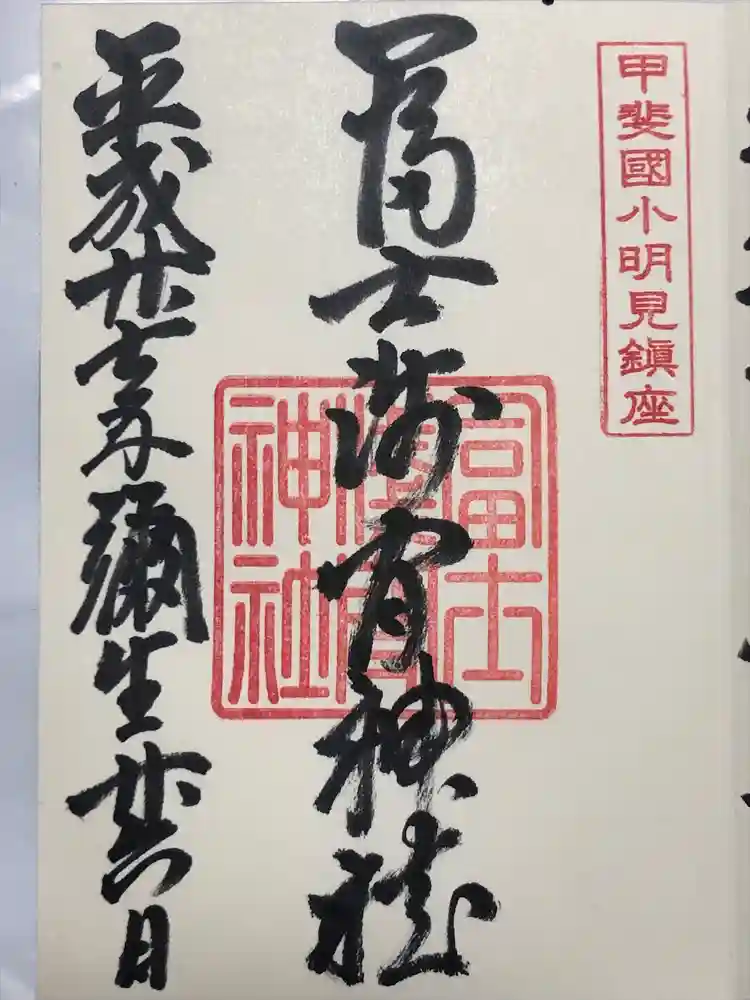 甲斐國小明見鎭座
冨士浅間神社
冨士
淺間
神社
平成廿七年彌生廿八日